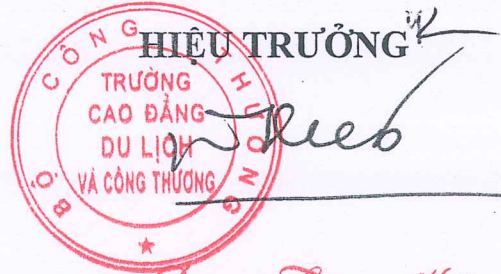 HIỆU TRƯỞNG
BỘ CÔNG THƯƠNG
TRƯỜNG
CAO ĐẲNG
DU LỊCH
VÀ CÔNG THƯƠNG